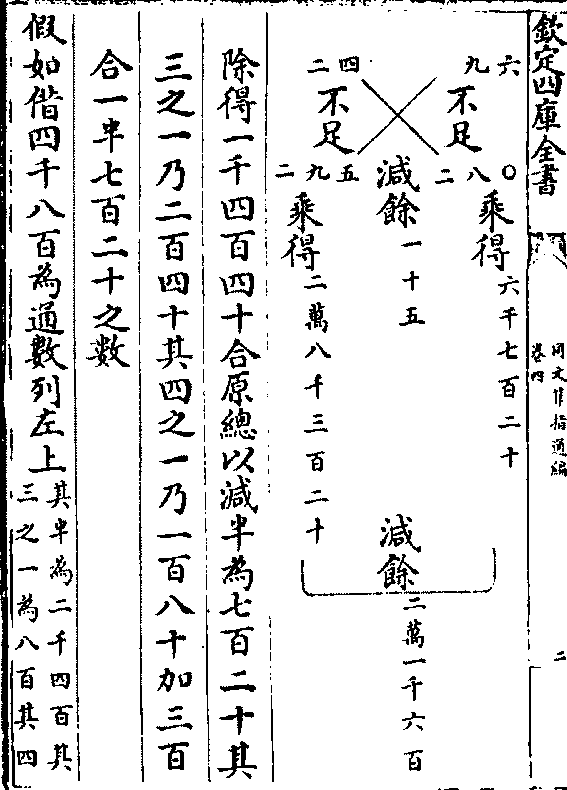 欽定四庫全書
同文算指通編
卷四
二
九六 不足 二八〇 乘得 六千七百二十
減餘 一十五
減餘 二萬一千六百
二四 不足 二九五 乘得 二萬八千三百二十
除得一千四百四十合原總以減半為七百二十其
三之一乃二百四十其四之一乃一百八十加三百
合一半七百二十之數
假如借四千八百為通數列左上
其半為二千四百其
三之一為八百其四